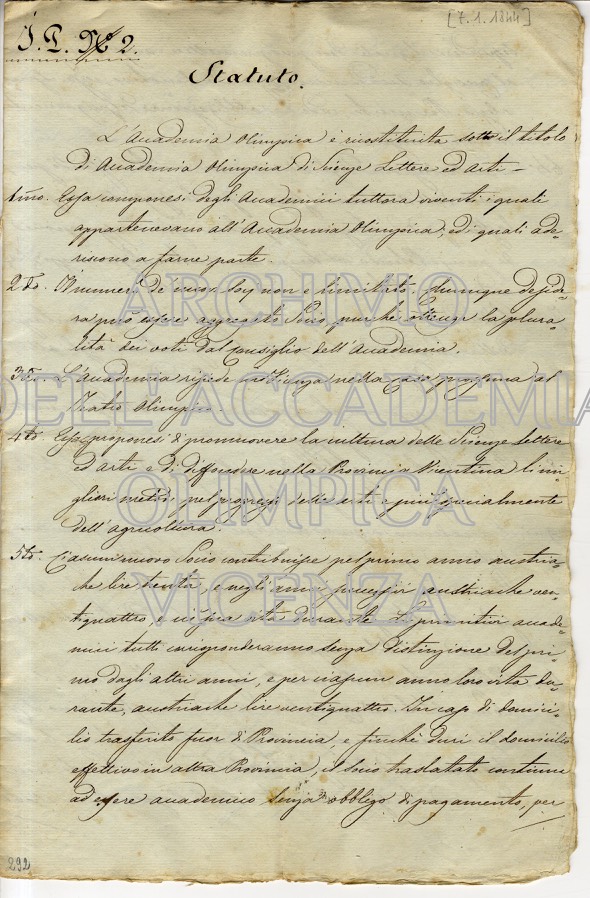 [7.1.1844]
I. P. No 2.
Statuto.
L'Accademia Olimpica è ricostituita sotto il titolo
di Accademia Olimpica di Scienze Lettere ed Arti –
1mo. Essa componesi degli Accademici tuttora viventi i quali
appartenevano all'Accademia Olimpica, ed i quali ade-
riscono a farne parte.
2do. Il numero de' nuovi Socj non è limitato. Chiunque deside-
ra può essere aggregato Socio, purchè ottenga la plura-
lità dei voti dal Consiglio dell'Accademia.
3zo. L'Accademia risiede in Vicenza nella Casa prossima al
Teatro Olimpico.
4to. Essa proponesi di promuovere la cultura delle Scienze Lettere
ed arti e di diffondere nella Provincia Vicentina li mi-
gliori metodi pel progresso delle arti e più specialmente
dell'agricoltura.
5to. Ciascun nuovo Socio contribuisce pel primo anno austria-
che lire trenta, e negli anni successivi austriache ven-
tiquattro, e ciò sua vita durante. Li primitivi accade-
mici tutti corrisponderanno senza distinzione del pri-
mo dagli altri anni, e per ciascun anno loro vita du-
rante, austriache lire ventiquattro. In caso di domici-
lio trasferito fuor di Provincia, e finchè duri il domicilio
effettivo in altra Provincia, il socio traslatato continua
ad essere accademico senza obbligo di pagamento, per
292
ARCHIVIO
DELL'ACCADEMIA
OLIMPICA
VICENZA